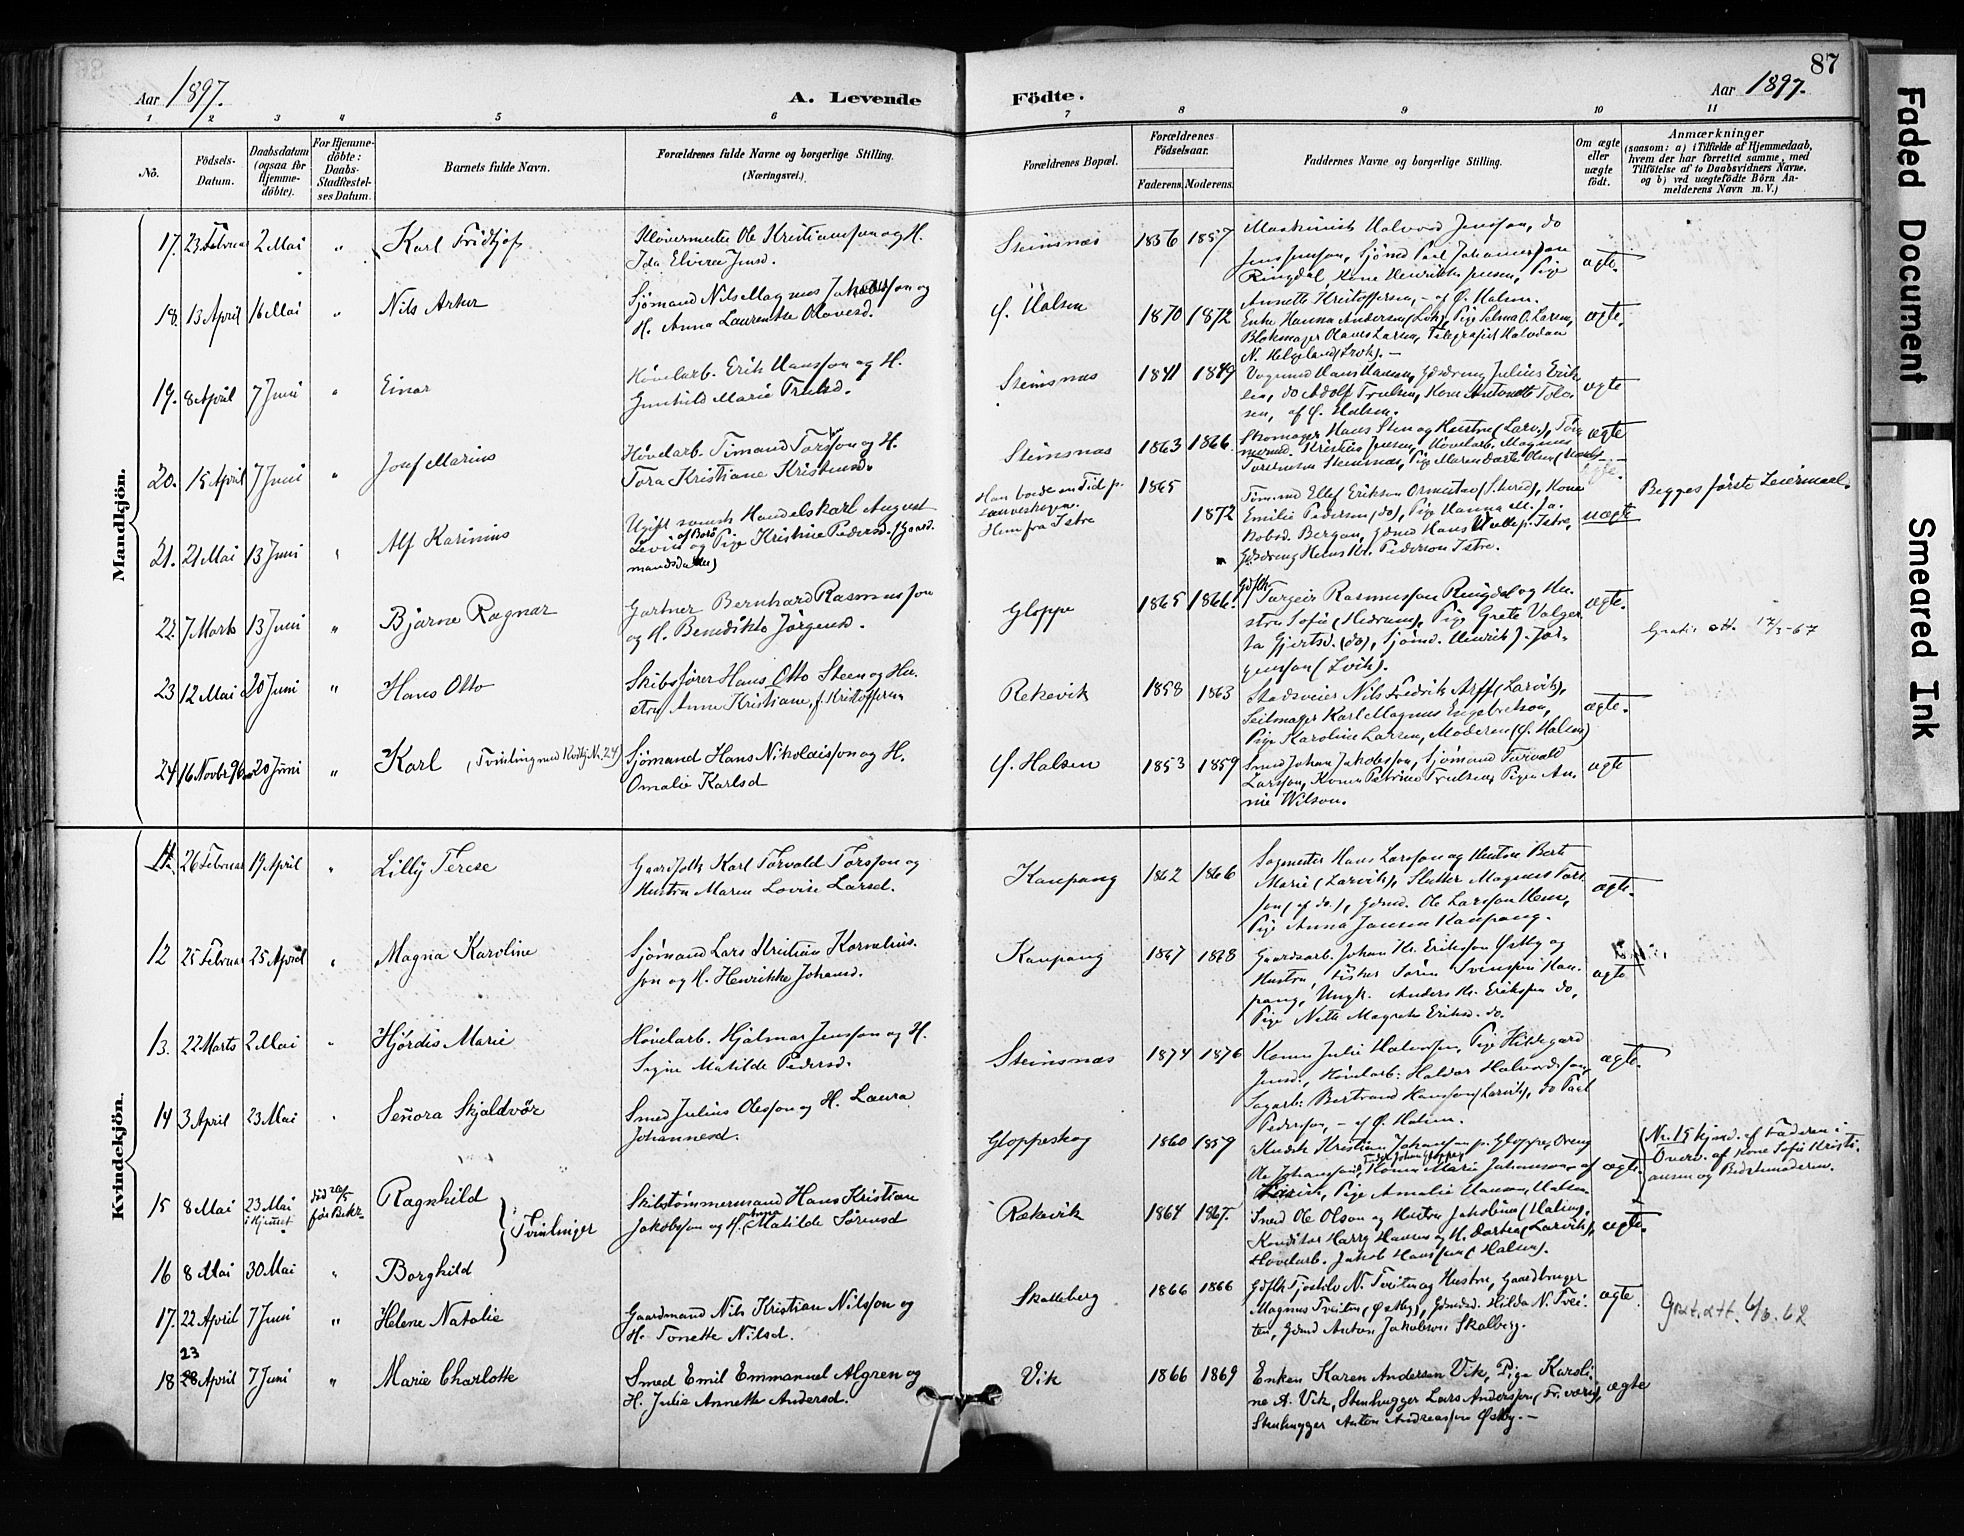 87
Aar 1897.
A. Levende Födte.
Aar 1897.
1 2 3 4 5 6 7 8 9 10 11
No.
Födsels-Datum.
Daabsdatum (ogsaa for Hjemme-döbte).
For Hjemme-döbte: Daabs-Stadfæstel-ses Datum.
Barnets fulde Navn.
Forældrenes fulde Navne og borgerlige Stilling.
(Næringsvei.)
Forældrenes Bopæl.
Forældrenes Födselsaar.
Faderens. Moderens.
Faddernes Navne og borgerlige Stilling.
Om ægte eller uægte födt.
Anmærkninger
(saasom: a) i Tilfælde af Hjemmedaab,
hvem der har forrettet samme, med
Tilföielse af to Daabsvidners Navne,
og b) ved uægtefödte Börn An-
melderens Navn m. V.)
Mandkjön.
17. 23 Februar 2 Mai " Karl Fridtjof
Høvermester Ole Kristiansson og H.
Ida Elvire Jensd.
Steinsnæs 1856 1857
Maskinist Halvord Jensson, do
Jens Jensson, Sjömd Paul Johannesson
Ringdal, Kone Henrikke Jensen, Pige
Annette Kristoffersen, - af Ø. Halsen.
ægte.
18. 13 April 16 Mai " Nils Artur
Sjömand Nils Magnus Jakobsson og
H. Anna Laurentse Olavesd.
Ø. Halsen 1870 1872
Enke Hanna Andersen (Lvk), Pige Selma O. Larsen,
Blokmager Olaves Larsen, Telegrafist Halvdan
N. Helgeland (Lvk). -
ægte.
19. 8 April 7 Juni " Einar
Hövelarb. Erik Hansson og H.
Gunhild Marie Trulsd.
Steinsnæs 1841 1849
Vognmd Hans Hansen, Gdsdreng Julius Erik-
sen, do Adolf Trulsen, Kone Antonette Tolo-
sen, af Ø. Halsen.
ægte
20. 15 April 7 Juni " Josef Marius
Hövelarb. Timand Torsson og H.
Tora Kristiane Kristensd.
Steinsnæs 1863 1866
Skomager Hans Sten og Hustru (Larv.), Töm-
mermd. Kristian Jensen, Hövelarb. Magnus
Torsensen Steinsnæs, Pige Maren Dorte Olsen
ægte
21. 21 Mai 13 Juni " Alf Karinius
Ugift svensk Handelskarl August
Levin af Borås og Pige Kristine Pedersd. (Gaard-
mandsdatter)
Han boede en Tid p.
Lauveskogen.
Hun fra Istre
1865 1872
Tömmd Ellef Erikson Ormestad (S.hered), Kone
Emilie Pedersen (do), Pige Hanna M. Ja-
kobsd. Bergan, Gdmd Hans Istre,
Gdsdreng Hans Kr. Pederson Istre.
uægte
Begges förste Leiermaal.
22. 7 Marts 13 Juni " Bjarne Ragnar
Gartner Bernhard Rasmusson
og H. Benedikte Jörgensd.
Gloppe 1865 1866
Gdsfth. Torgeir Rasmusson Ringdal og Hu-
stru Sofie (Hedrum), Pige Grete Valger-
ta Gjertsd. (do), Sjömd. Henrik J. Jör-
genson (Lvik).
ægte.
Gratis att. 17/3-67
23 12 Mai 20 Juni " Hans Otto
Skibsförer Hans Otto Steen og Hu-
stru Anne Kristiane, f. Kristoffersen
Rekevik 1858 1863
Stadsveier Nils Fredrik Arff (Larvik),
Seilmager Karl Magnus Engebretson,
Pige Karoline Larsen, Moderen (Ø. Halsen)
ægte.
24 16 Novbr 96 20 Juni " Karl (Tvilling med Kvkj. Nr. 24)
Sjömand Hans Nikolaisson og H.
Omalie Karlsd
Ø. Halsen 1853 1859
Smed Johan Jakobsson, Sjömand Torvald
Larsson, Konen Petrine Trulsen, Pigen An-
nie Wilson.
ægte
Kvindekjön.
11. 26 Februar 19 April " Lilly Terese
Gaardfolk Karl Torvald Torsson og
Hustru Maren Lovise Larsd.
Kaupang 1862 1866
Sagmester Hans Larsson og Hustru Bert
Marie (Larvik), Slutter Magnus Tors-
son (af do.), Gdmd. Ole Larsson Hem,
Pige Anna Jansen Kaupang.
ægte.
12 25 Februar 25 April " Magna Karoline
Sjömand Lars Kristian Kornelius-
son og H. Henrikke Johansd.
Kaupang 1867 1868
Gaardsarb. Johan Kr. Eriksson Østby og
Hustru, Fisker Sören Svensson Kau-
pang, Ungk. Anders Kr. Eriksson do,
Pige Nette Magrete Eriksd. do.
ægte
13. 22 Marts 2 Mai " Hjördis Marie
Hövelarb. Hjalmar Jensson og H.
Signe Matilde Pedersd.
Steinsnæs 1874 1876
Konen Julie Halvorsen, Pige Hildegard
Jensd., Hövelarb. Haldor Halvordsson,
Sagarb. Bertrand Hansson (Larvik), do Paul
Pederson, - af Ø. Halsen.
ægte.
14 3 April 23 Mai " Señora Skjaldvör
Smed Julius Olesson og H. Laura
Johannesd.
Gloppeskog 1860 1859
Kudsk Kristian Johansson p. Gloppe, Dreng
Ole Johansson, Konen Marie Johansen, af
Larvik, Pige Amalie Hansen, Halsen
ægte
(Nr. 15 hjmd. af Faderen i
Overv. af Kone Sofie Kristi-
ansen og Bedstemoderen.
15 8 Mai 23 Mai i Hjemmet död 26/5 för Bekr. Ragnhild
} Tvillinger
Skibstömmermand Hans Kristian
Jakobsson og H. Matilde Sörensd
Rækevik 1864 1867.
Smed Ole Olson og Hustru Jakobine (Halsen),
Konditor Harry Hansen og H. Dortea (Larvik),
Hövelarb. Jakob Hansson (Halsen).
ægte.
16 8 Mai 30 Mai " Borghild
17. 22 April 7 Juni " Helene Natalie
Gaardmand Nils Kristian Nilsson og
H. Tonette Nilsd.
Skalleberg 1866 1866
Gdsfth Tjostolv N. Tveiten og Hustru, Gaardbruger
Magnus Tveiten (Østby), Gdmdsd. Hilda N. Tvei-
ten, Gdmd Anton Jakobson Skalberg.
ægte.
Grat. att. 6/3. 62
18 23 28 April 7 Juni " Marie Charlotte
Smed Emil Emmanuel Algren og
H. Julie Annette Andersd.
Vik 1866 1869
Enken Karen Andersen Vik, Pige Karoli-
ne A. Vik, Stenhugger Lars Andersson (Tr.værig),
Stenhugger Anton Andreasson Østby. -
ægte
Faded Document
Smeared Ink